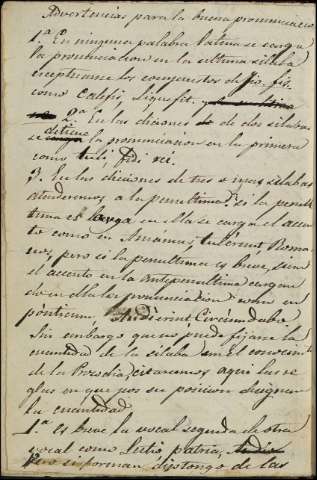 Advertencias para la buena pronunciacion
1.ª En ninguna palabra latina se carga
la pronunciacion en la ultima silaba
exceptuanse los compuestos de fio, fis,
como calefit, liquefit,
2.ª En las diciones de dos silabas
se carga la pronunciacion en la primera
como tuli, fidi
3. En las diciones de tres o mas silabas
atendemos a la penultima, si la penul-
tima es larga en ella se carga el acen-
to como en Amamus, tulerunt, Roma
nus, pero si la penultima es breve, tiene
el acento en la antepenultima cargan
do en ella la pronunciacion como en
ponticum,
Sin embargo que no puede fijarse la
cuantidad de la silaba sin el conocimto
de la Prosodia, citaremos aqui las re
glas en que por su posicion designan
la cuantidad
1.ª es breve la vocal seguida de otra
vocal como Lectio, patria,
Pero si forman diptongo de las